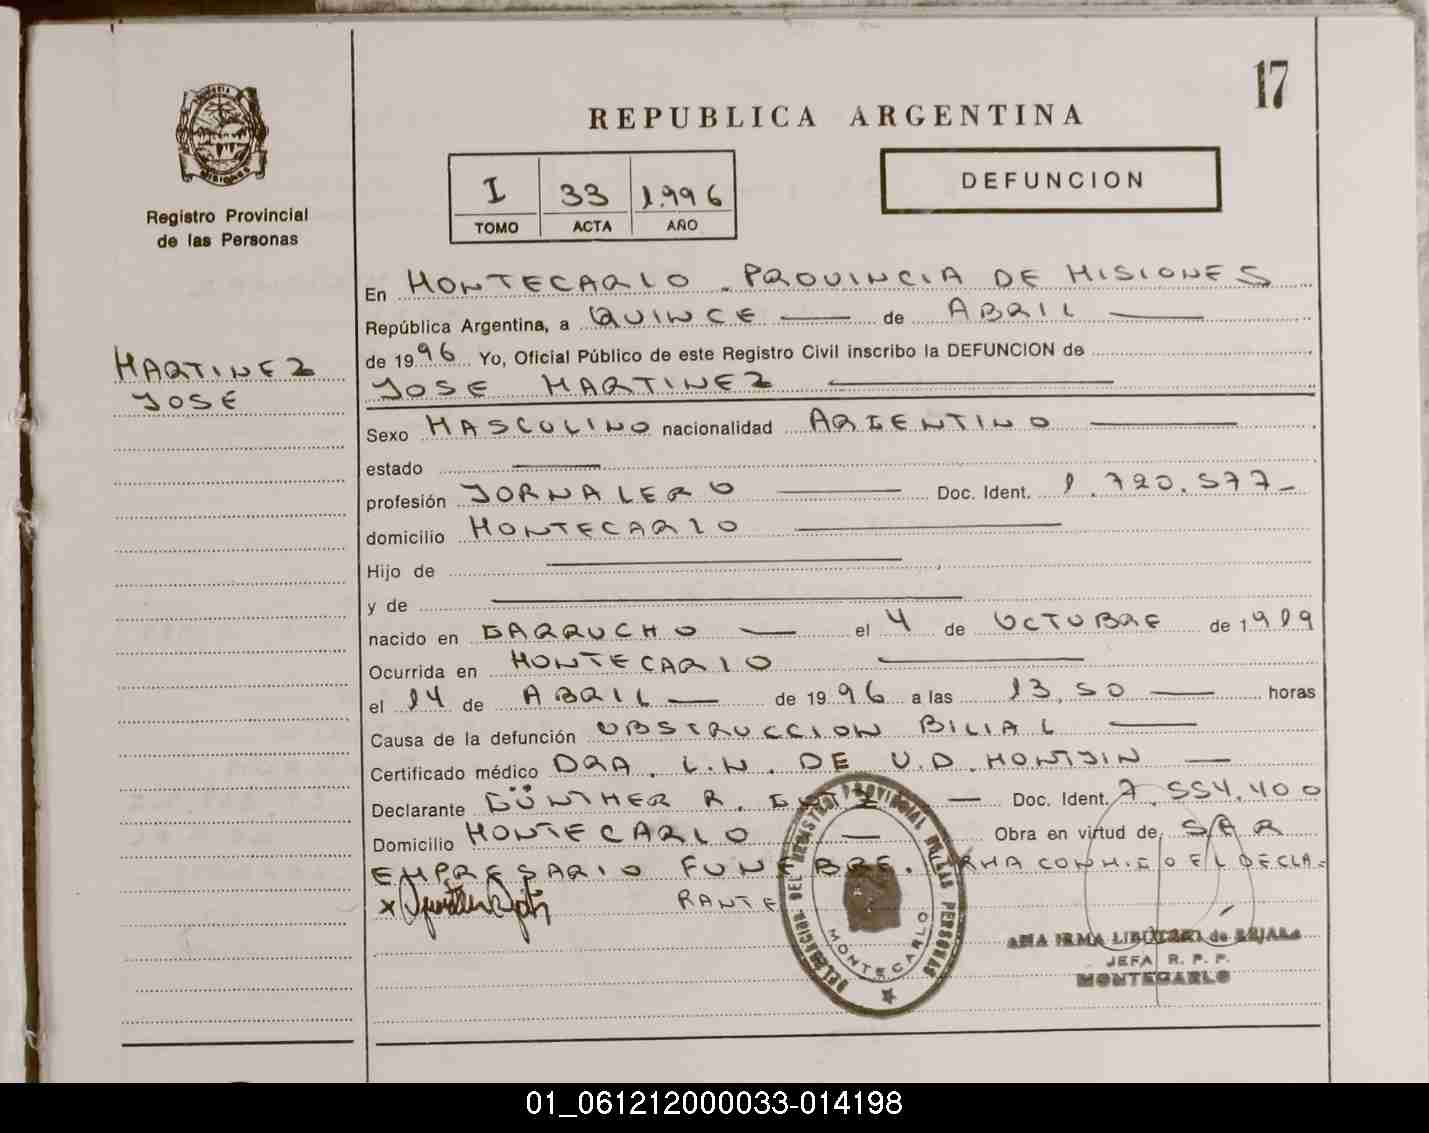 17
REPUBLICA ARGENTINA
I 33 1.996
TOMO ACTA AÑO
DEFUNCION
MISIONES
Registro Provincial
de las Personas
MARTINEZ
JOSE
En MONTECARLO - PROVINCIA DE MISIONES
República Argentina, a QUINCE — de ABRIL —
de 1996 Yo, Oficial Público de este Registro Civil inscribo la DEFUNCION de
JOSE MARTINEZ —
Sexo MASCULINO nacionalidad ARGENTINO —
estado —
profesión JORNALERO — Doc. Ident. 1.720.577-
domicilio MONTECARLO —
Hijo de —
y de —
nacido en GARRUCHO — el 4 de OCTUBRE de 1919
Ocurrida en MONTECARLO —
el 14 de ABRIL — de 1996 a las 13,50 — horas
Causa de la defunción OBSTRUCCION BILIAL —
Certificado médico DRA. L.N. DE V.D. MONTJIN —
Declarante GÜNTHER R. — Doc. Ident. 7.554.400
Domicilio MONTECARLO — Obra en virtud de SER
EMPRESARIO FUNEBRE. FIRMA CONMIGO EL DECLA=
RANTE
DELEGACION DEL REGISTRO PROVINCIAL DE LAS PERSONAS
MONTECARLO
ANA IRMA de
JEFA R. P. P.
MONTECARLO
01_061212000033-014198